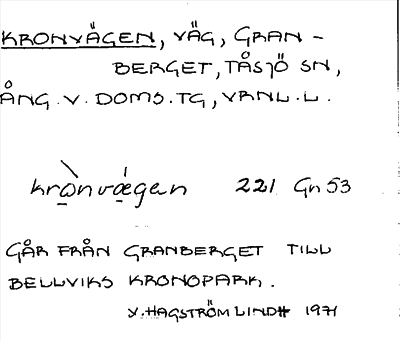 KRONVÄGEN, VÄG, GRAN-
BERGET, TÅSJÖ SN,
ÅNG.V.DOMS.TG, VRNL.L.
krònvǽgen 221 Gn 53
GÅR FRÅN GRANBERGET TILL
BELLVIKS KRONOPARK.
V. HAGSTRÖM LINDH 1971